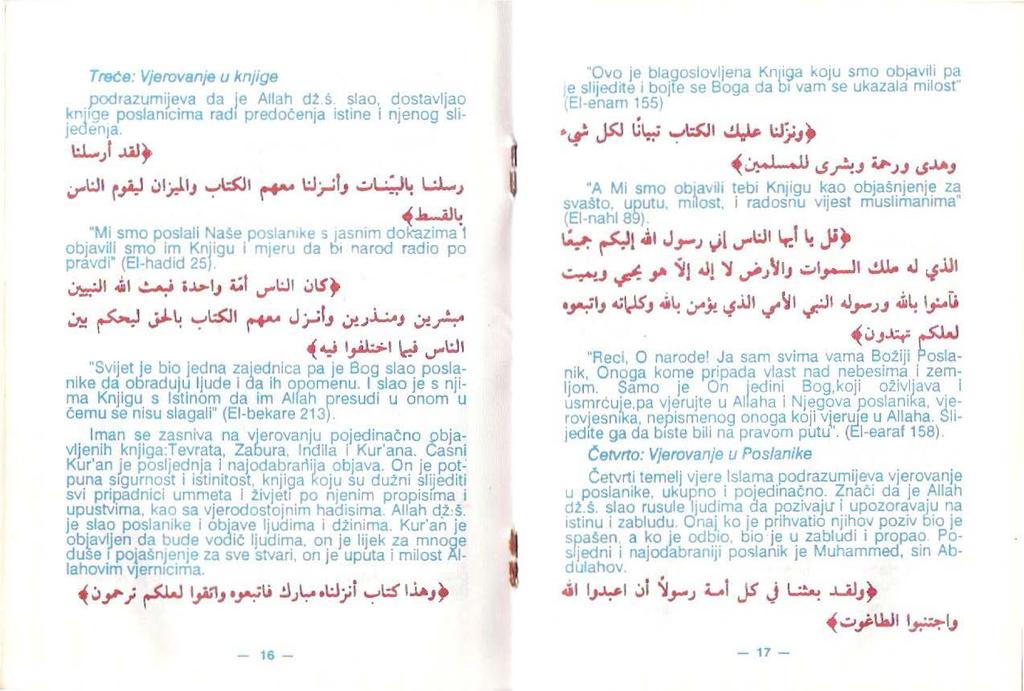 Treće: Vjerovanje u knjige
podrazumijeva da je Allah dž.š. slao, dostavljao
knjige poslanicima radi predočenja istine i njenog sli-
jeđenja.
﴿لقد أرسلنا
رسلنا بالبيّنات وأنزلنا معهم الكتاب والميزان ليقوم الناس
بالقسط﴾
"Mi smo poslali Naše poslanike s jasnim dokazima i
objavili smo im Knjigu i mjeru da bi narod radio po
pravdi" (El-hadid 25).
﴿كان الناس أمّة واحدة فبعث الله النبيين
مبشرين ومنذرين وأنزل معهم الكتاب بالحق ليحكم بين
الناس فيما اختلفوا فيه﴾
"Svijet je bio jedna zajednica pa je Bog slao posla-
nike da obraduju ljude i da ih opomenu. I slao je s nji-
ma Knjigu s Istinom da im Allah presudi u onom u
čemu se nisu slagali" (El-bekare 213).
Iman se zasniva na vjerovanju pojedinačno obja-
vljenih knjiga:Tevrata, Zabura, Inđila i Kur'ana. Časni
Kur'an je posljednja i najodabranija objava. On je pot-
puna sigurnost i istinitost, knjiga koju su dužni slijediti
svi pripadnici ummeta i živjeti po njenim propisima i
upustvima, kao sa vjerodostojnim hadisima. Allah dž.š.
je slao poslanike i objave ljudima i džinima. Kur'an je
objavljen da bude vodič ljudima, on je lijek za mnoge
duše i pojašnjenje za sve stvari, on je uputa i milost Al-
lahovim vjernicima.
﴿وهذا كتاب أنزلناه مبارك فاتبعوه واتقوا لعلكم ترحمون﴾
— 16 —
"Ovo je blagoslovljena Knjiga koju smo objavili pa
je slijedite i bojte se Boga da bi vam se ukazala milost"
(El-enam 155)
﴿ونزلنا عليك الكتاب تبياناً لكل شيء
وهدى ورحمة وبشرى للمسلمين﴾
"A Mi smo objavili tebi Knjigu kao objašnjenje za
svašto, uputu, milost, i radosnu vijest muslimanima"
(El-nahl 89).
﴿قل يا أيها الناس إني رسول الله إليكم جميعًا
الذي له ملك السموات والأرض لا إله إلاّ هو يحيي ويميت
فآمنوا بالله ورسوله النبي الأمي الذي يؤمن بالله وكلماته واتبعوه
لعلكم تهتدون﴾
"Reci, O narode! Ja sam svima vama Božiji Posla-
nik, Onoga kome pripada vlast nad nebesima i zem-
ljom. Samo je On jedini Bog,koji oživljava i
usmrćuje,pa vjerujte u Allaha i Njegova poslanika, vje-
rovjesnika, nepismenog onoga koji vjeruje u Allaha. Sli-
jedite ga da biste bili na pravom putu". (El-earaf 158).
Četvrto: Vjerovanje u Poslanike
Četvrti temelj vjere Islama podrazumijeva vjerovanje
u poslanike, ukupno i pojedinačno. Znači da je Allah
dž.š. slao rusule ljudima da pozivaju i upozoravaju na
istinu i zabludu. Onaj ko je prihvatio njihov poziv bio je
spašen, a ko je odbio, bio je u zabludi i propao. Po-
sljedni i najodabraniji poslanik je Muhammed, sin Ab-
dulahov.
﴿ولقد بعثنا في كل أمة رسولاً أن اعبدوا الله
واجتنبوا الطاغوت﴾
— 17 —